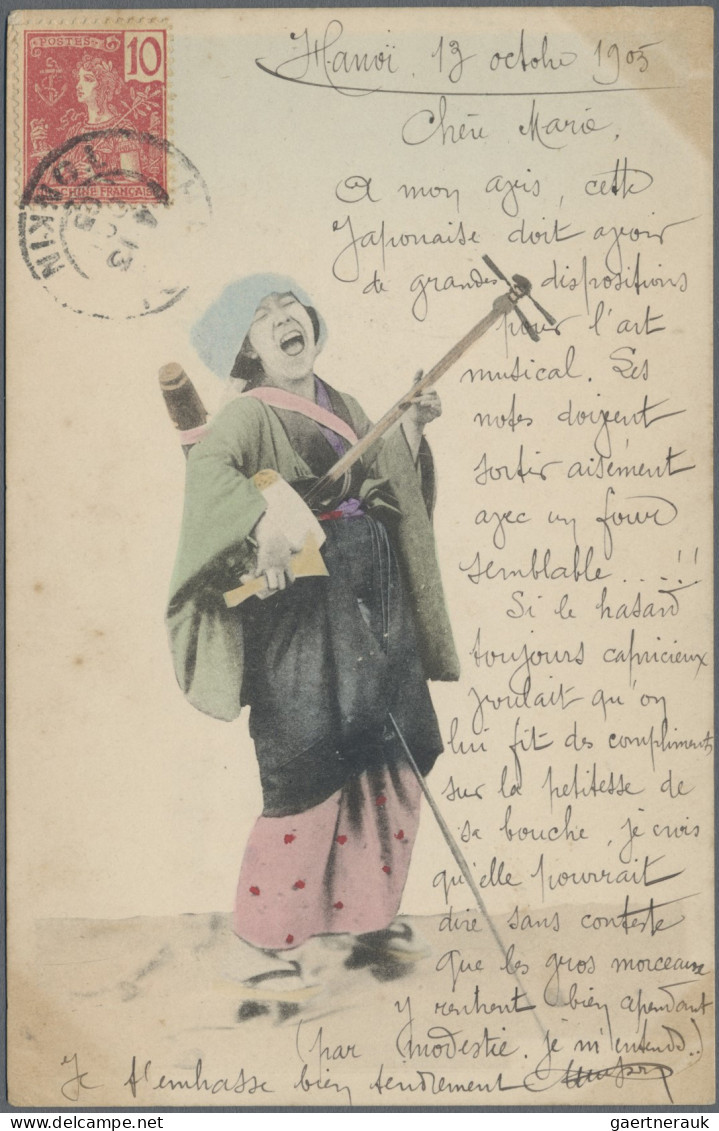 POSTES
10
INDOCHINE FRANÇAISE
TONKIN
13
Hanoï, 13 octobre 1905
Chère Marie,
A mon avis, cette
Japonaise doit avoir
de grandes dispositions
pour l'art
musical. Les
notes doivent
sortir aisément
avec un four
semblable....!!
Si le hasard
toujours capricieux
voulait qu'on
lui fit des compliments
sur la petitesse de
sa bouche, je crois
qu'elle pourrait
dire sans conteste
que les gros morceaux
y rentrent bien cependant
(par modestie, je m'entends.)
Je t'embrasse bien tendrement
gaertnerauk